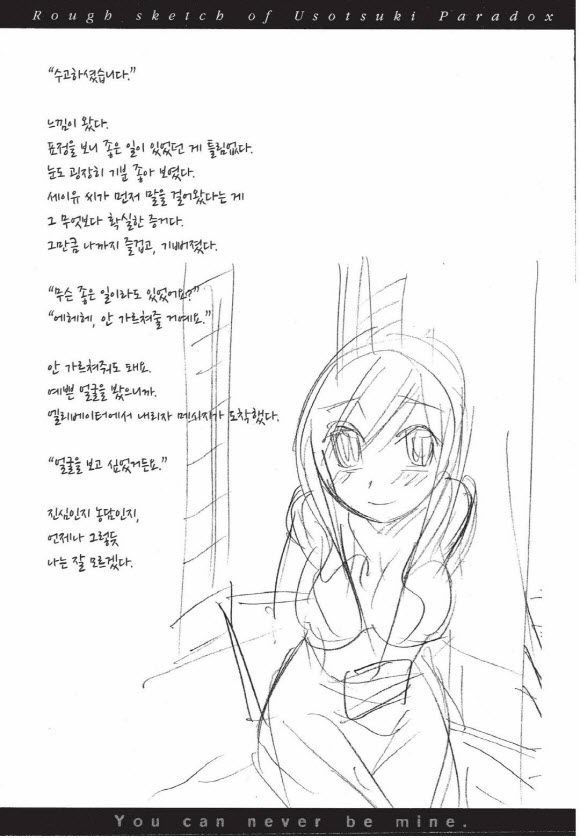 Rough sketch of Usotsuki Paradox
“수고하셨습니다.”
느낌이 왔다.
표정을 보니 좋은 일이 있었던 게 틀림없다.
눈도 굉장히 기분 좋아 보였다.
세이유 씨가 먼저 말을 걸어왔다는 게
그 무엇보다 확실한 증거다.
그만큼 나까지 즐겁고, 기뻐졌다.
“무슨 좋은 일이라도 있었어요?”
“에헤헤, 안 가르쳐줄 거예요.”
안 가르쳐줘도 돼요.
예쁜 얼굴을 봤으니까.
엘리베이터에서 내리자 메시지가 도착했다.
“얼굴을 보고 싶었거든요.”
진심인지 농담인지,
언제나 그렇듯
나는 잘 모르겠다.
You can never be mine.